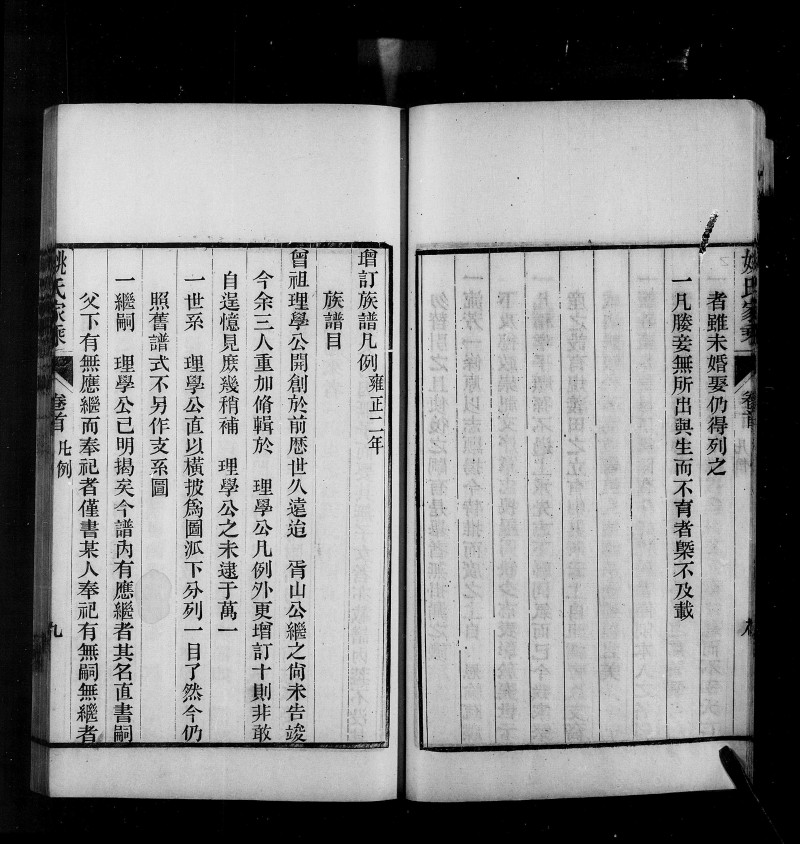 者雖未婚娶仍得列之
一凡媵妾無所出與生而不育者槩不及載
增訂族譜凡例雍正二年
族譜目
曾祖理學公開創於前歷世久遠迨　胥山公繼之尙未告竣
今余三人重加脩輯於　理學公凡例外更增訂十則非敢
自逞憶見庶幾稍補　理學公之未逮于萬一
一世系　理學公直以橫披爲圖派下分列一目了然今仍
照舊譜式不另作支系圖
一繼嗣　理學公已明揭矣今譜內有應繼者其名直書嗣
父下有無應繼而奉祀者僅書某人奉祀有無嗣無繼者
姚氏家乘　卷首　凡例　九